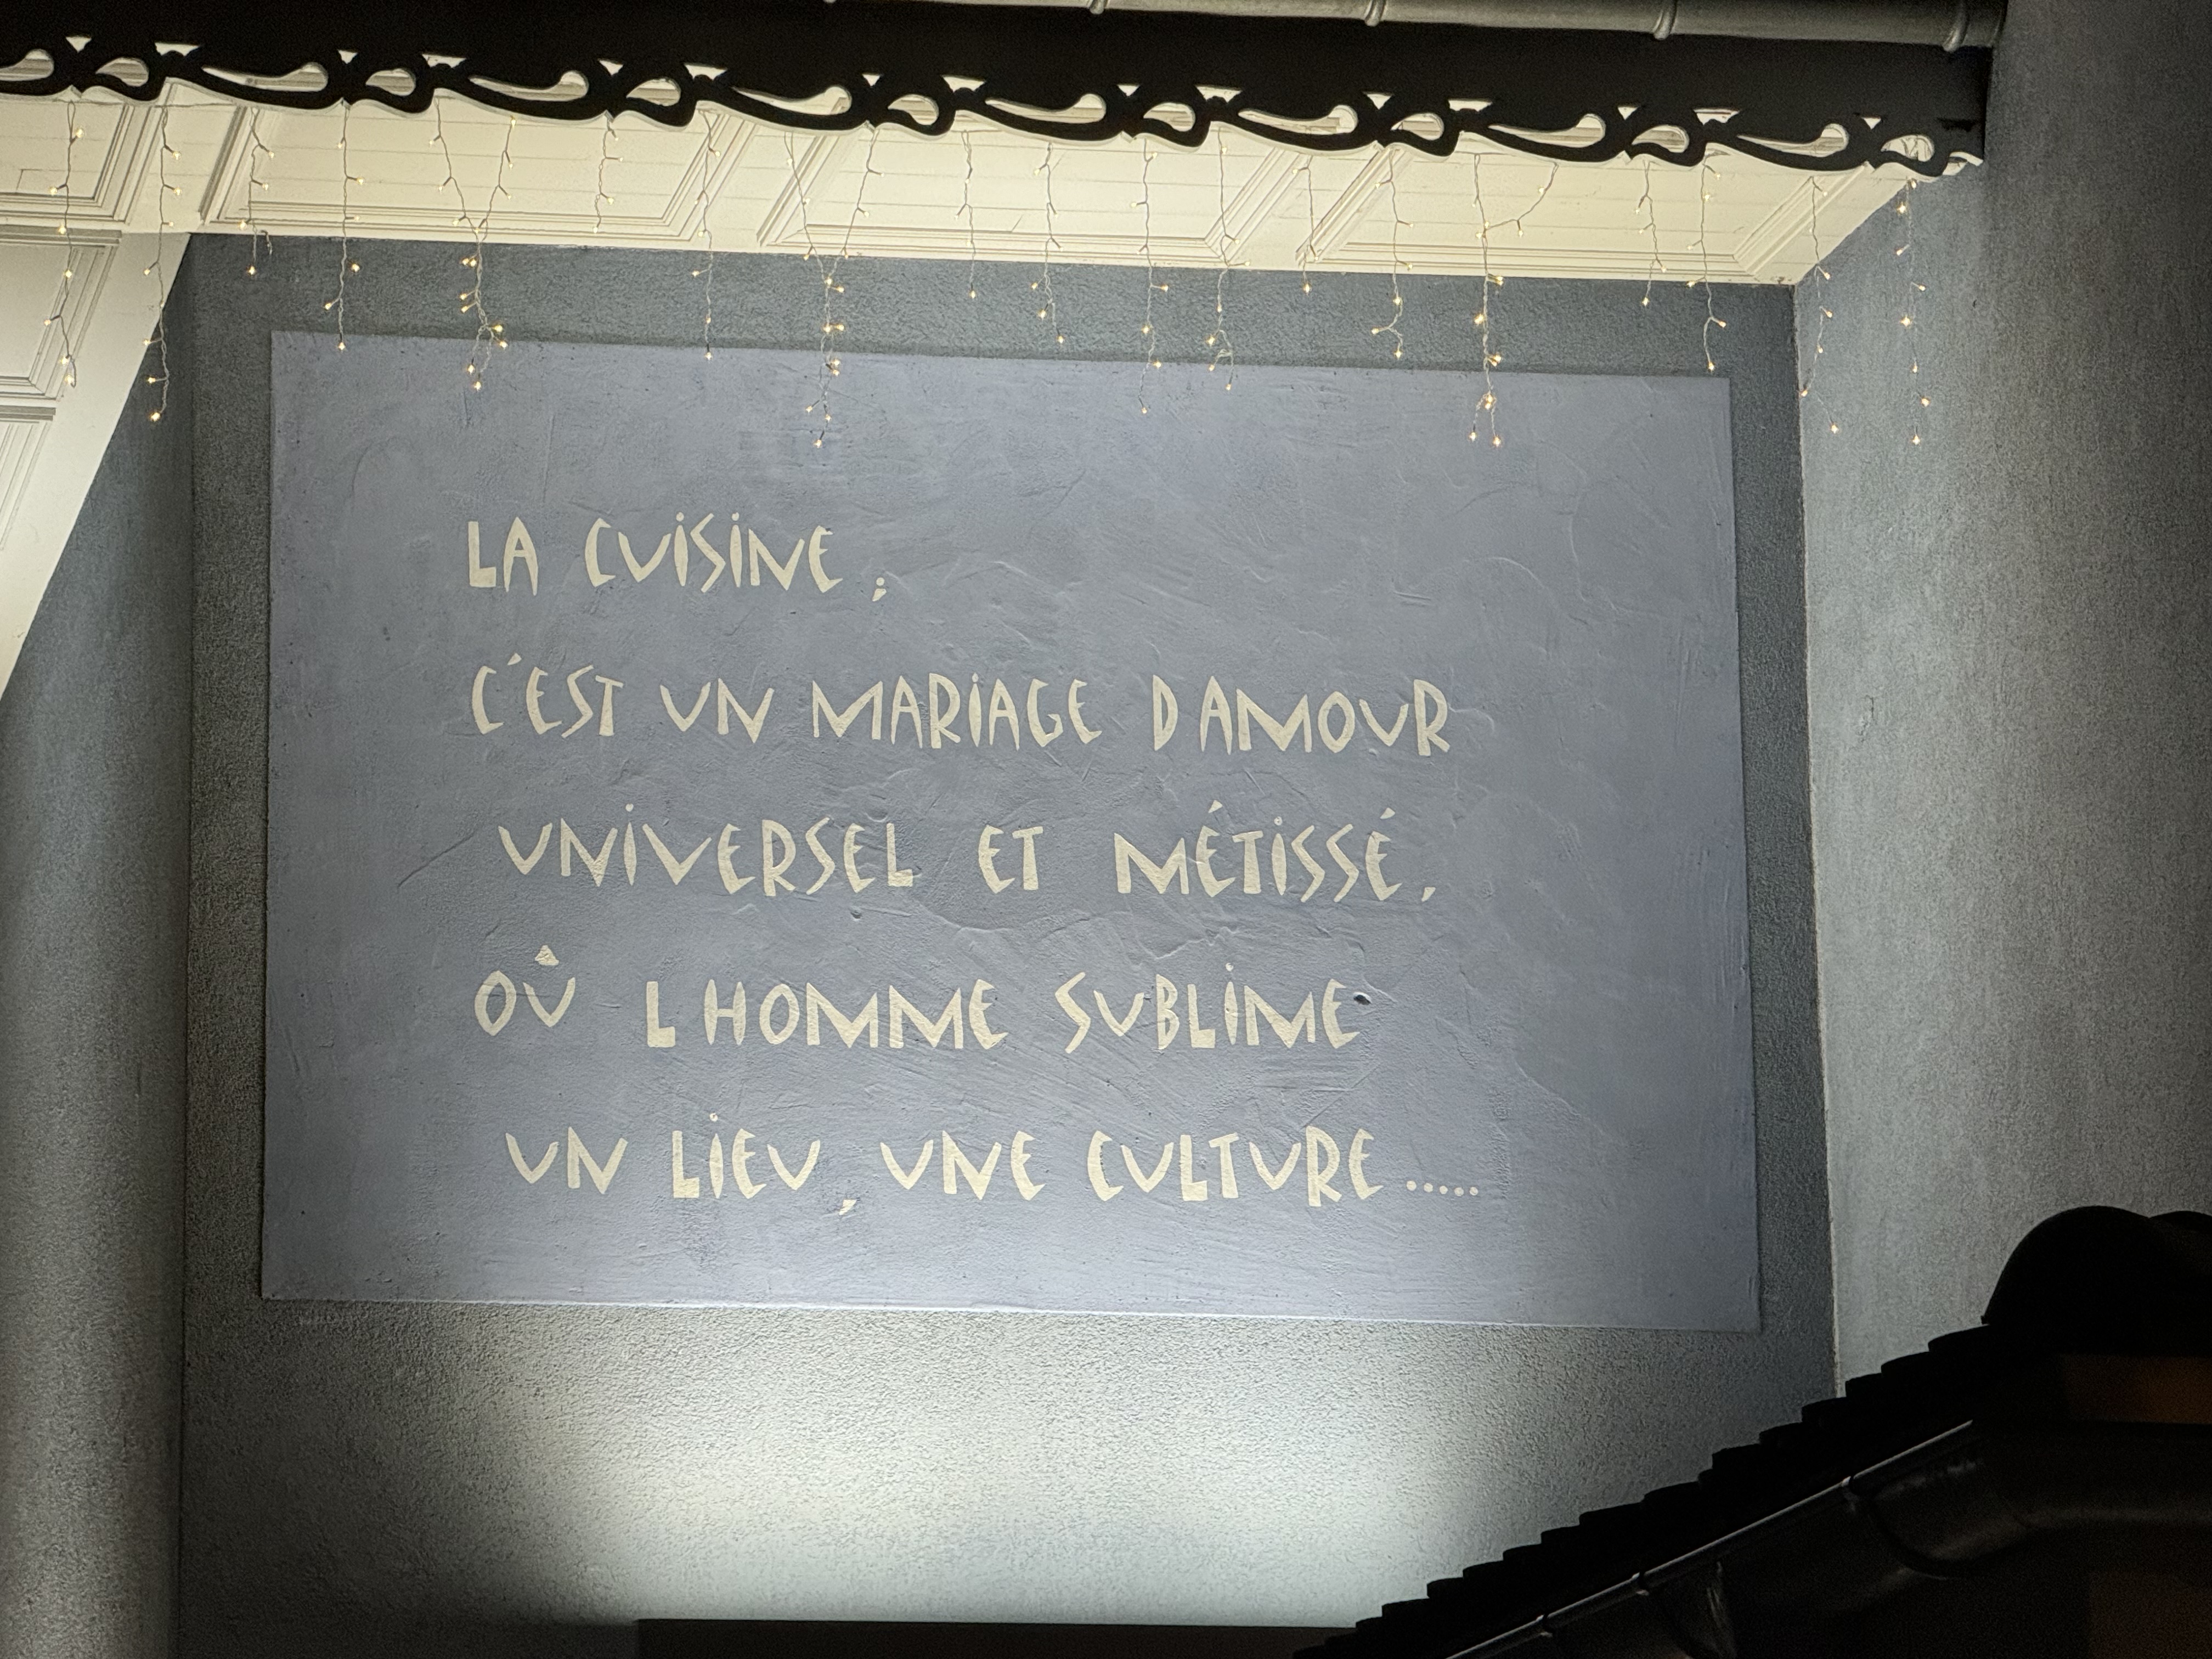 LA CUISINE ;
C'EST UN MARIAGE D AMOUR
UNIVERSEL ET MÉTISSÉ,
OÙ L HOMME SUBLIME
UN LIEU, UNE CULTURE.....